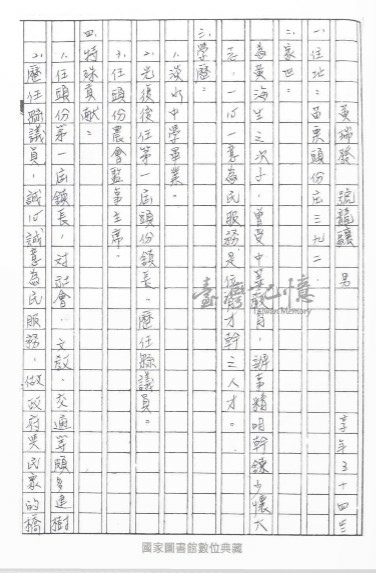 黃瑞發 號龍讓 男 享年五十四歲
一、住址：苗栗頭份庄三九二
二、家世：
為黃海生之次子，曾受中等教育，辦事精明幹練少懷大
志，一心一意為民服務是位幹才三人才。
三、學歷：
1.淡水中學畢業。
2.光復後任第一屆頭份鎮長、歷任縣議員。
3.任頭份農會監事主席。
四、特殊貢獻：
1.任頭份第一屆鎮長，對社會、文教、交通等頗多建樹
2.歷任縣議員，誠心誠意為民服務，做政府與民眾的橋
臺灣記憶
Taiwan Memory
國家圖書館數位典藏